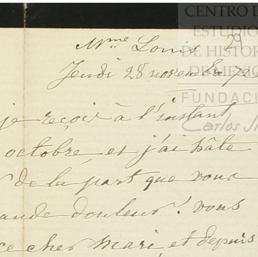 CENTRO D
ESTUDIO
DE HISTOR
DE MÉXIC
FUNDACI
Carlos Sl
Mme Louis
Jeudi 28 novembre
je reçois à l'instant
octobre et j'ai hâte
de la part que vous
ande douleur! vous
ce cher mari, et depuis